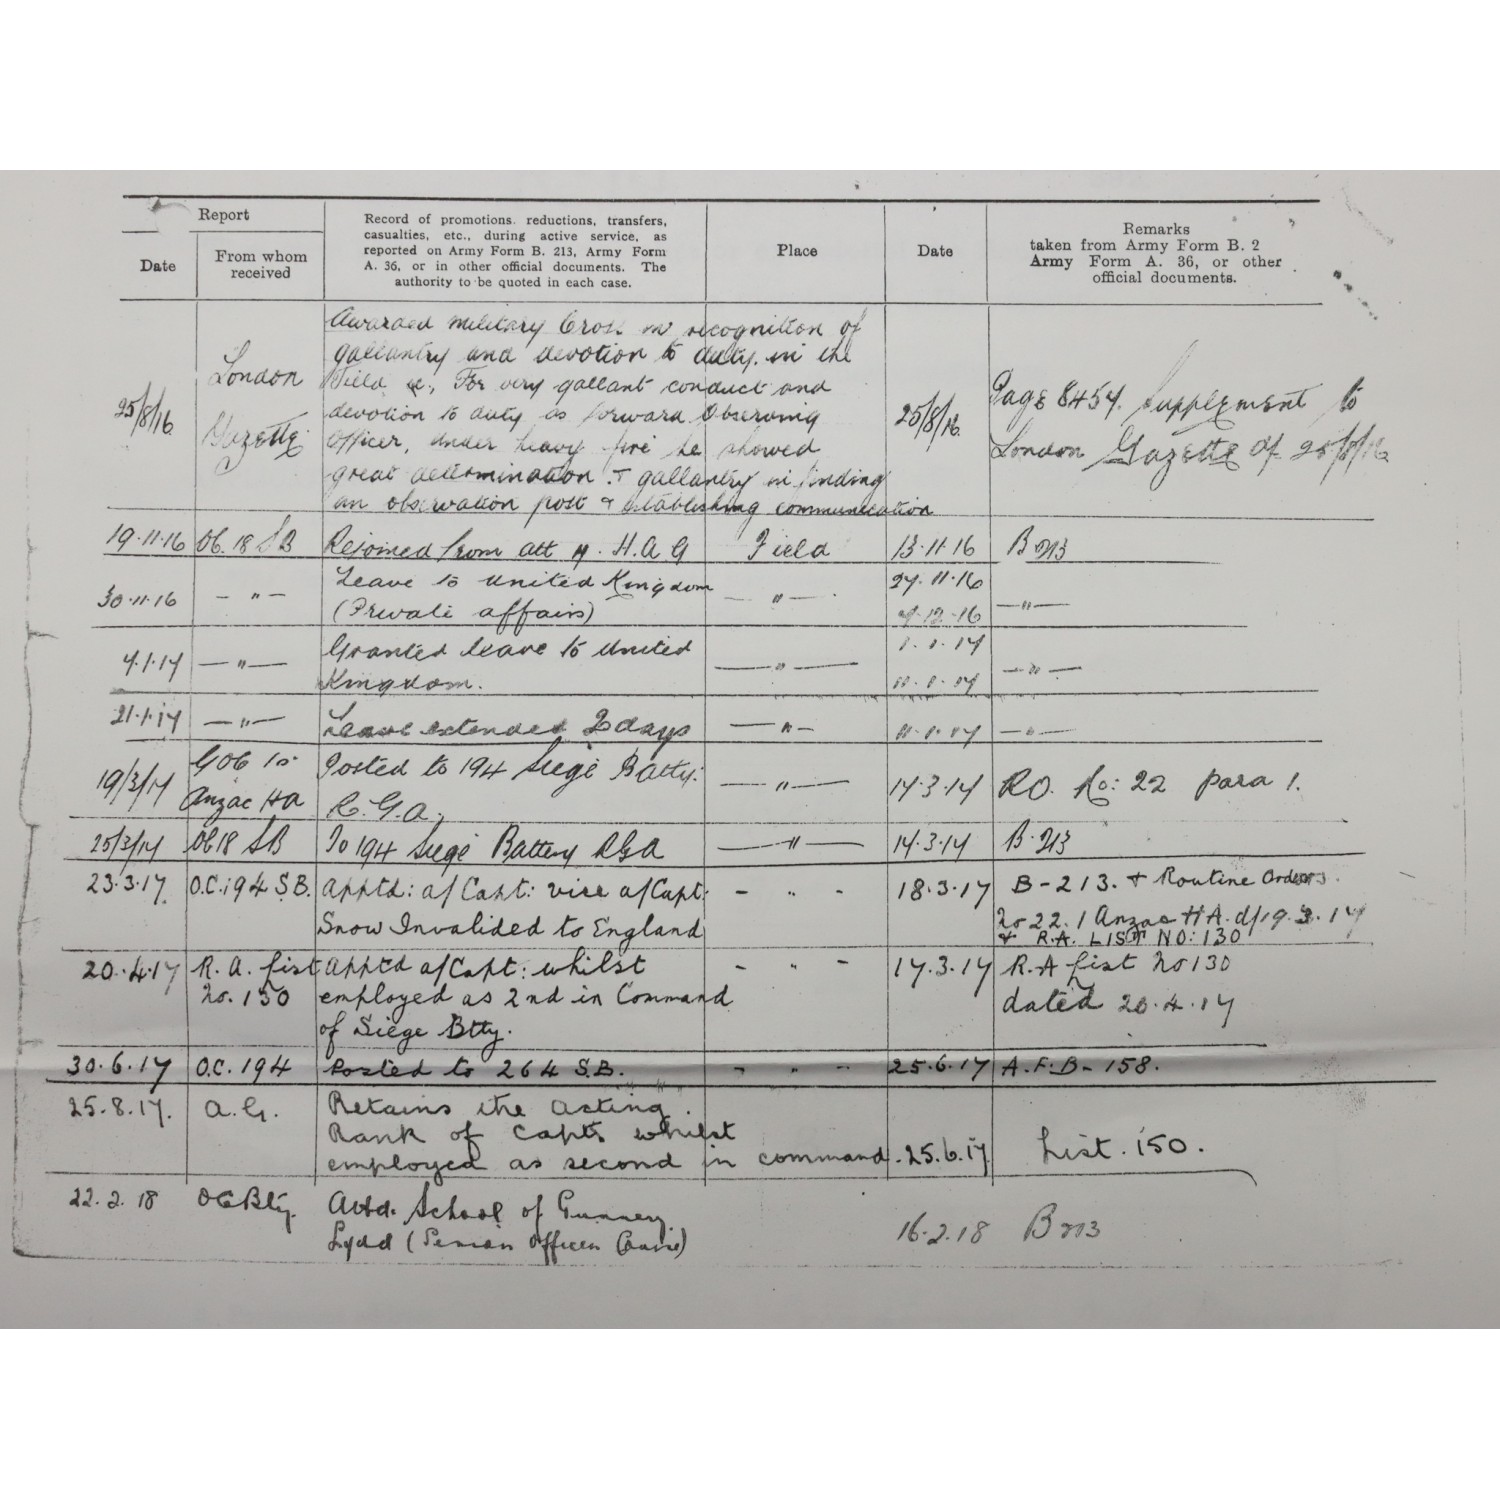 Report
Date
From whom received
Record of promotions. reductions, transfers,
casualties, etc., during active service, as
reported on Army Form B. 213, Army Form
A. 36, or in other official documents. The
authority to be quoted in each case.
Place
Date
Remarks
taken from Army Form B. 2
Army Form A. 36, or other
official documents.
25/8/16
London
Gazette
Awarded Military Cross in recognition of
gallantry and devotion to duty. in the
Field &c, For very gallant conduct and
devotion to duty as forward Observing
Officer, under heavy fire he showed
great determination. + gallantry in finding
an observation post + establishing communication
25/8/16
Page 8457. Supplement to
London Gazette of 25/8/16
19.11.16 OC. 18 SB Rejoined from att H.A.G Field 13.11.16 B 213
30.11.16 — " — Leave to United Kingdom — " — 27.11.16 — " —
(Private affairs) 7.12.16
7.1.17 — " — Granted leave to United — " — 1.1.17 — " —
Kingdom. 11.1.17
21.1.17 — " — Leave extended 2 days — " — 11.1.17 — " —
19/3/17 GOC 1st Posted to 194 Siege Batty: — " — 17.3.17 RO. No: 22 para 1.
Anzac HA R.G.A.
25/3/17 OC 18 SB To 194 Siege Battery RGA — " — 17.3.17 B. 213
23.3.17. O.C. 194 S.B. Apptd: a/Capt: vice a/Capt: - " - 18.3.17 B-213. + Routine Orders.
Snow Invalided to England No 22.1 Anzac HA. d/19.3.17
+ R.A. LIST NO: 130
20.4.17 R.A. List Apptd a/Capt: whilst - " - 17.3.17 R.A List No 130
No. 130 employed as 2nd in Command dated 20.4.17
of Siege Btty.
30.6.17 O.C. 194 Posted to 264 S.B. - " - 25.6.17 A.F.B-158.
25.8.17. A.G. Retains the acting
Rank of Capt. whilst
employed as second in command. 25.6.17 List. 150.
22.2.18 OC Bty. Attd. School of Gunnery.
Lydd (Senior Officers Course) 16.2.18 B 213